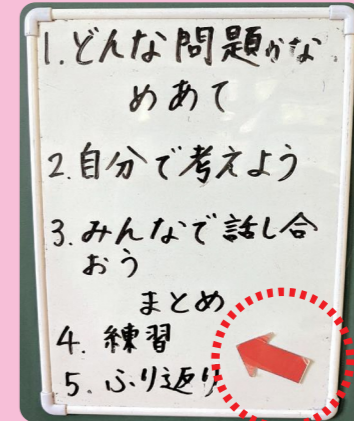 1.どんな問題かな
めあて
2.自分で考えよう
3.みんなで話し合
おう
まとめ
4.練習
5.ふり返り